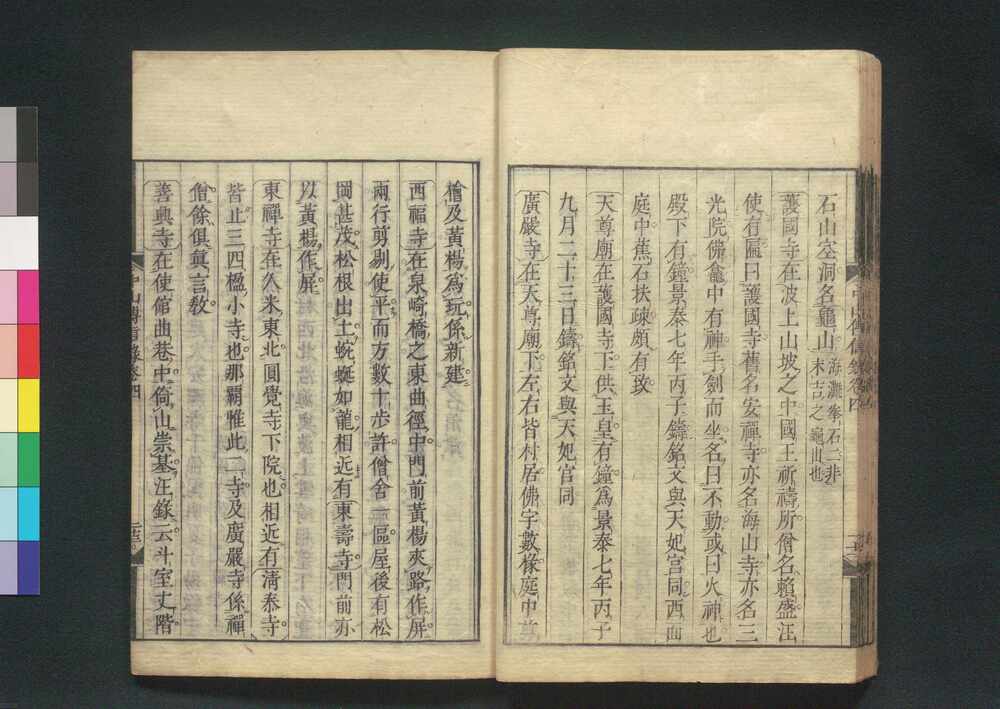 石山空洞名龜山海灘拳石二非末吉之龜山也
護國寺在波上山坡之中國王祈禱所僧名賴盛汪
使有匾曰護國寺舊名安禪寺亦名海山寺亦名三
光院佛龕中有神手劍而坐名曰不動或曰火神也
殿下有鐘景泰七年丙子鑄銘文與天妃宮同西面
庭中蕉石扶疎頗有致
天尊廟在護國寺下供玉皇有鐘爲景泰七年丙子
九月二十三日鑄銘文與天妃宮同
廣嚴寺在天尊廟下左右皆村居佛宇數椽庭中
檜及黃楊爲玩係新建
西福寺在泉崎橋之東曲徑中門前黃楊夾路作屏
兩行剪剔使平而方數十步許僧舍一區屋後有松
岡甚茂松根出土蜿蜒如龍相近有東壽寺門前亦
以黃楊作屏
東禪寺在久米東北圓覺寺下院也相近有清泰寺
皆止三四楹小寺也那霸惟此二寺及廣嚴寺係禪
僧餘俱眞言敎
善興寺在使館曲巷中倚山崇基汪錄云斗室丈階
中山傳信錄卷四